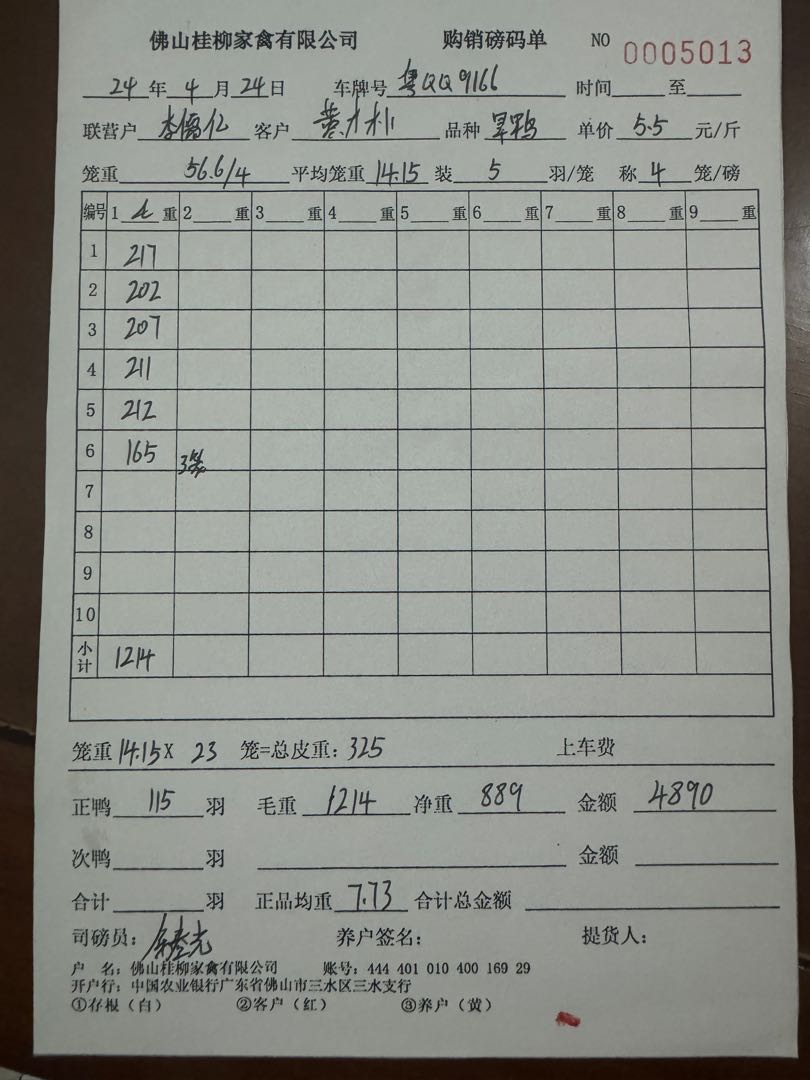 佛山桂柳家禽有限公司 购销磅码单 NO 0005013
24 年 4 月 24 日 车牌号 粤QQ9166 时间 至
联营户 李儒亿 客户 黄力朴 品种 旱鸭 单价 5.5 元/斤
笼重 56.6/4 平均笼重 14.15 装 5 羽/笼 称 4 笼/磅
编号 1 重 2 重 3 重 4 重 5 重 6 重 7 重 8 重 9 重
1 217
2 202
3 207
4 211
5 212
6 165 3笼
7
8
9
10
小计 1214
笼重 14.15 X 23 笼=总皮重: 325 上车费
正鸭 115 羽 毛重 1214 净重 889 金额 4890
次鸭 羽 金额
合计 羽 正品均重 7.73 合计总金额
司磅员: 养户签名: 提货人:
户 名: 佛山桂柳家禽有限公司 账号: 444 401 010 400 169 29
开户行: 中国农业银行广东省佛山市三水区三水支行
①存根(白) ②客户(红) ③养户(黄)